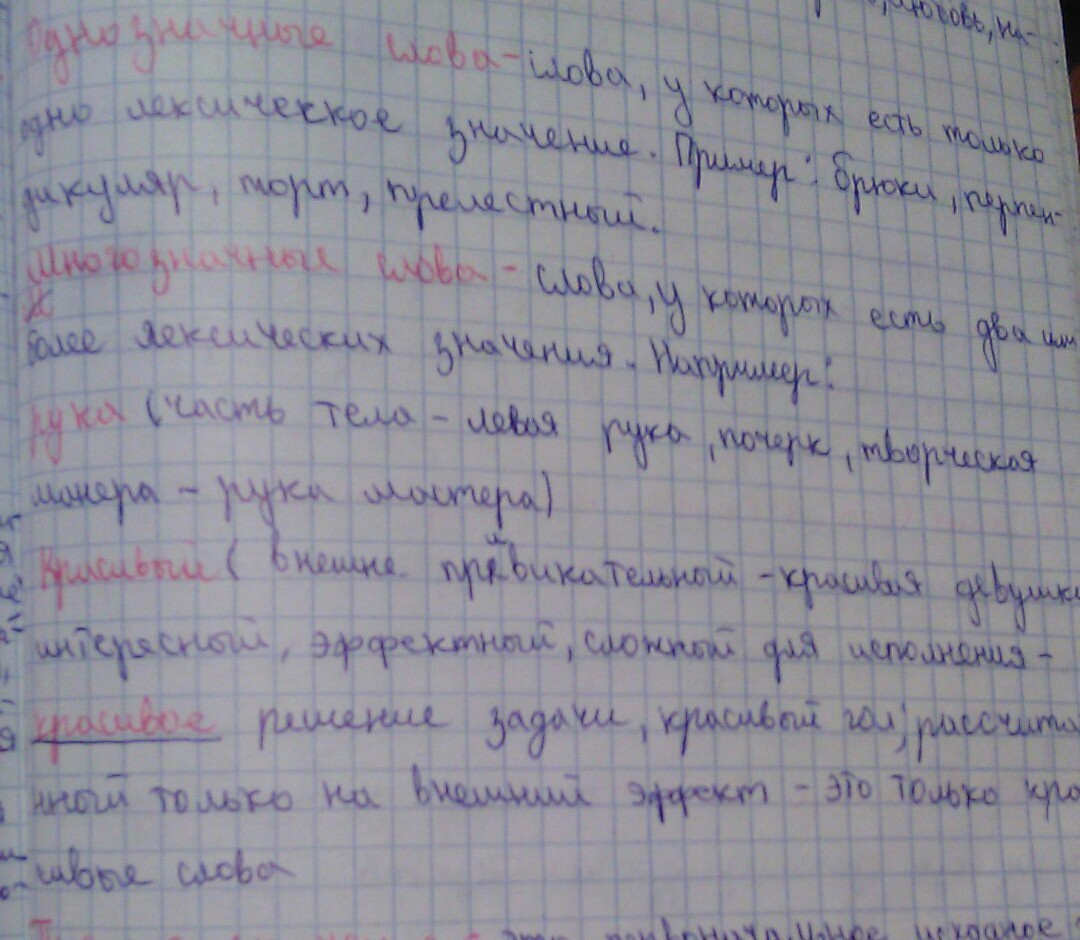 любовь, на-
Однозначные слова - слова, у которых есть только
одно лексическое значение. Пример: брюки, перпен-
дикуляр, торт, прелестный.
Многозначные слова - слова, у которых есть два или
более лексических значения. Например:
рука (часть тела - левая рука, почерк, творческая
манера - рука мастера)
Красивый (внешне привикательный - красивая девушка
интересный, эффектный, сложный для исполнения -
красивое решение задачи, красивый гол; рассчита
нный только на внешний эффект - это только кра
сивые слова
- это первоначальное исходное